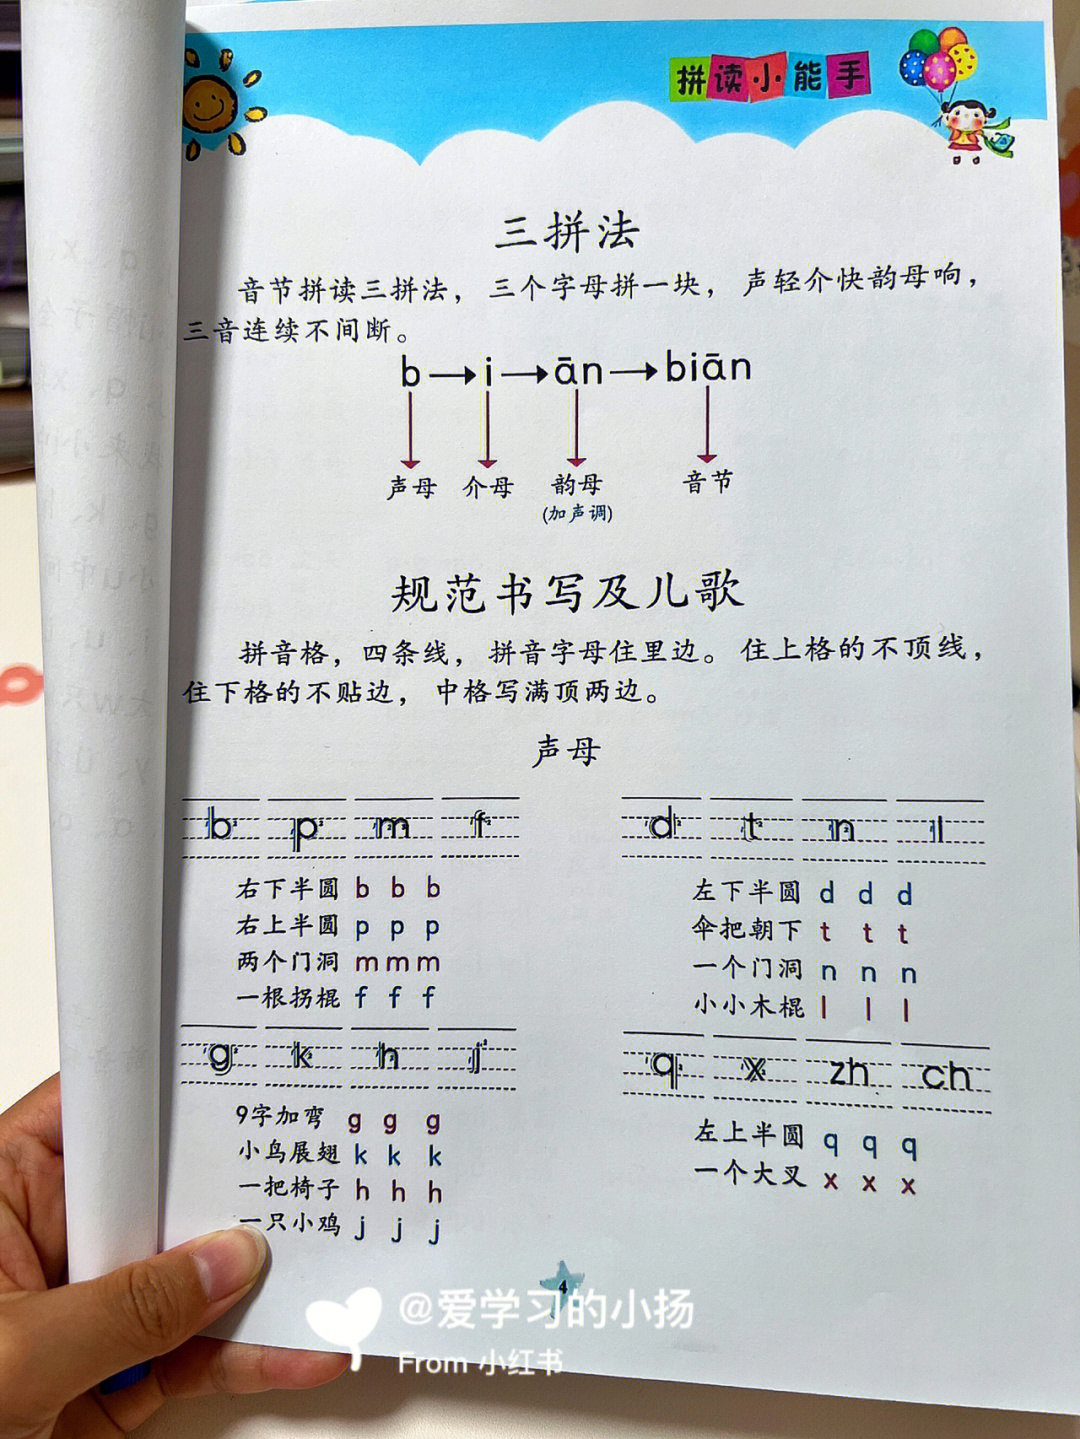 拼读小能手
三拼法
音节拼读三拼法，三个字母拼一块，声轻介快韵母响，
三音连续不间断。
b→i→ān→biān
声母 介母 韵母 音节
(加声调)
规范书写及儿歌
拼音格，四条线，拼音字母住里边。住上格的不顶线，
住下格的不贴边，中格写满顶两边。
声母
b p m f
右下半圆 b b b
右上半圆 p p p
两个门洞 m m m
一根拐棍 f f f
d t n l
左下半圆 d d d
伞把朝下 t t t
一个门洞 n n n
小小木棍 l l l
g k h j
9字加弯 g g g
小鸟展翅 k k k
一把椅子 h h h
一只小鸡 j j j
q x zh ch
左上半圆 q q q
一个大叉 x x x
4
@爱学习的小扬
From 小红书